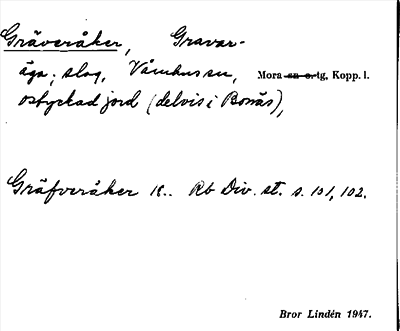 Gräveråker, Gravar-
äga; slog, Våmhus sn, Mora tg, Kopp. l.
ostyckad jord (delvis i Bonäs),
Gräfveråker 18.. Rb Div. st. s. 101, 102.
Bror Lindén 1947.